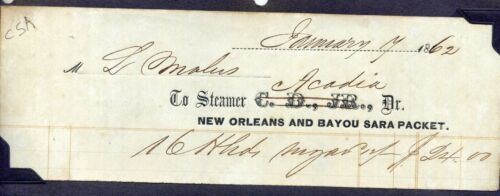 CSA
January 7 1862
M L Molus
Acadia
To Steamer C. D., JR., Dr.
NEW ORLEANS AND BAYOU SARA PACKET.
16 Hhds 00